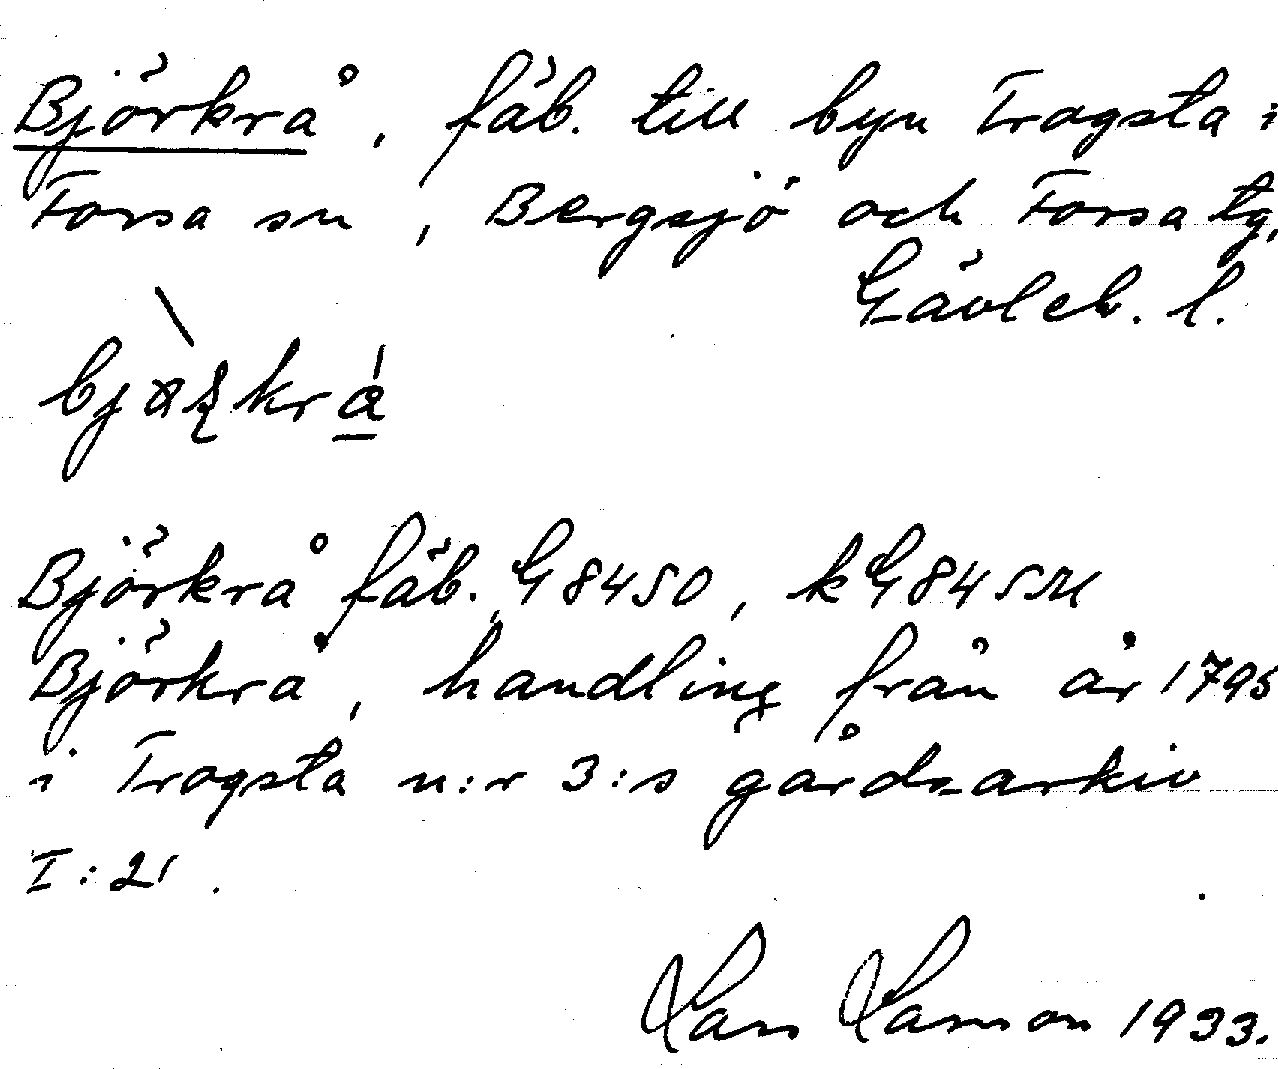 Björkrå, fäb. till byn Trogsta i
Forsa sn, Bergsjö och Forsa tg,
Gävleb. l.
Björkrå fäb. G 8450, k G 845
Björkrå, handling från år 1795
i Trogsta n:r 3:s gårdsarkiv
I:21.
Lars Larsson 1933.